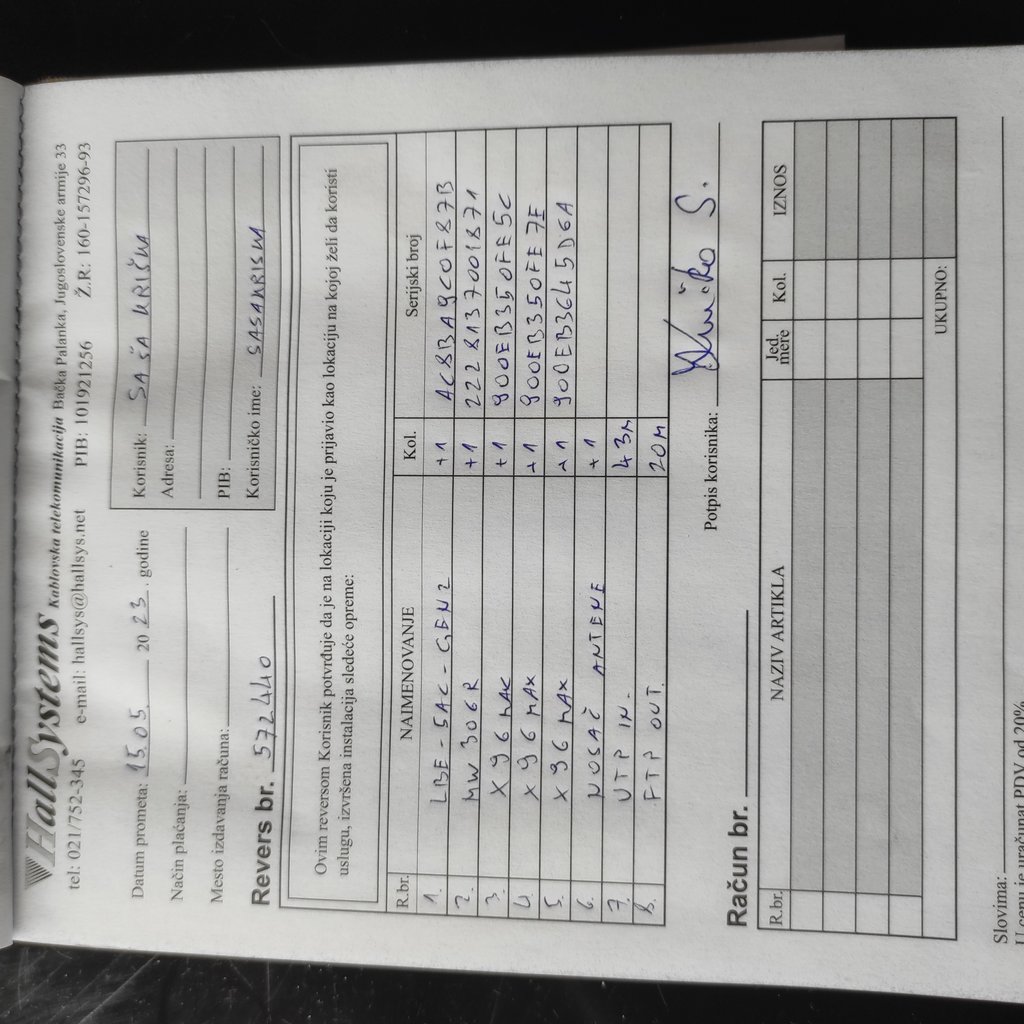 HallSystems Kablovska telekomunikacija Bačka Palanka, Jugoslovenske armije 33
tel: 021/752-345 e-mail: hallsys@hallsys.net PIB: 101921256 Ž.R.: 160-157296-93
Datum prometa: 15.05 2023. godine
Način plaćanja:
Mesto izdavanja računa:
Revers br. 572440
Korisnik: SAŠA KRIŠKA
Adresa:
PIB:
Korisničko ime: SASAKRISKA
Ovim reversom Korisnik potvrđuje da je na lokaciji koju je prijavio kao lokaciju na kojoj želi da koristi
uslugu, izvršena instalacija sledeće opreme:
R.br. NAIMENOVANJE Kol. Serijski broj
1. LBE-5AC-GEN2 +1 AC8BA9C0F87B
2. MW306R +1 2228137001871
3. X96 MAX +1 900EB350FE5C
4. X96 MAX +1 900EB350FE7E
5. X96 MAX +1 900EB3645D6A
6. NOSAČ ANTENE +1
7. UTP IN. 43M
8. FTP OUT. 20M
Potpis korisnika:
Račun br.
R.br. NAZIV ARTIKLA Jed. mere Kol. IZNOS
UKUPNO:
Slovima:
U cenu je uračunat PDV od 20%